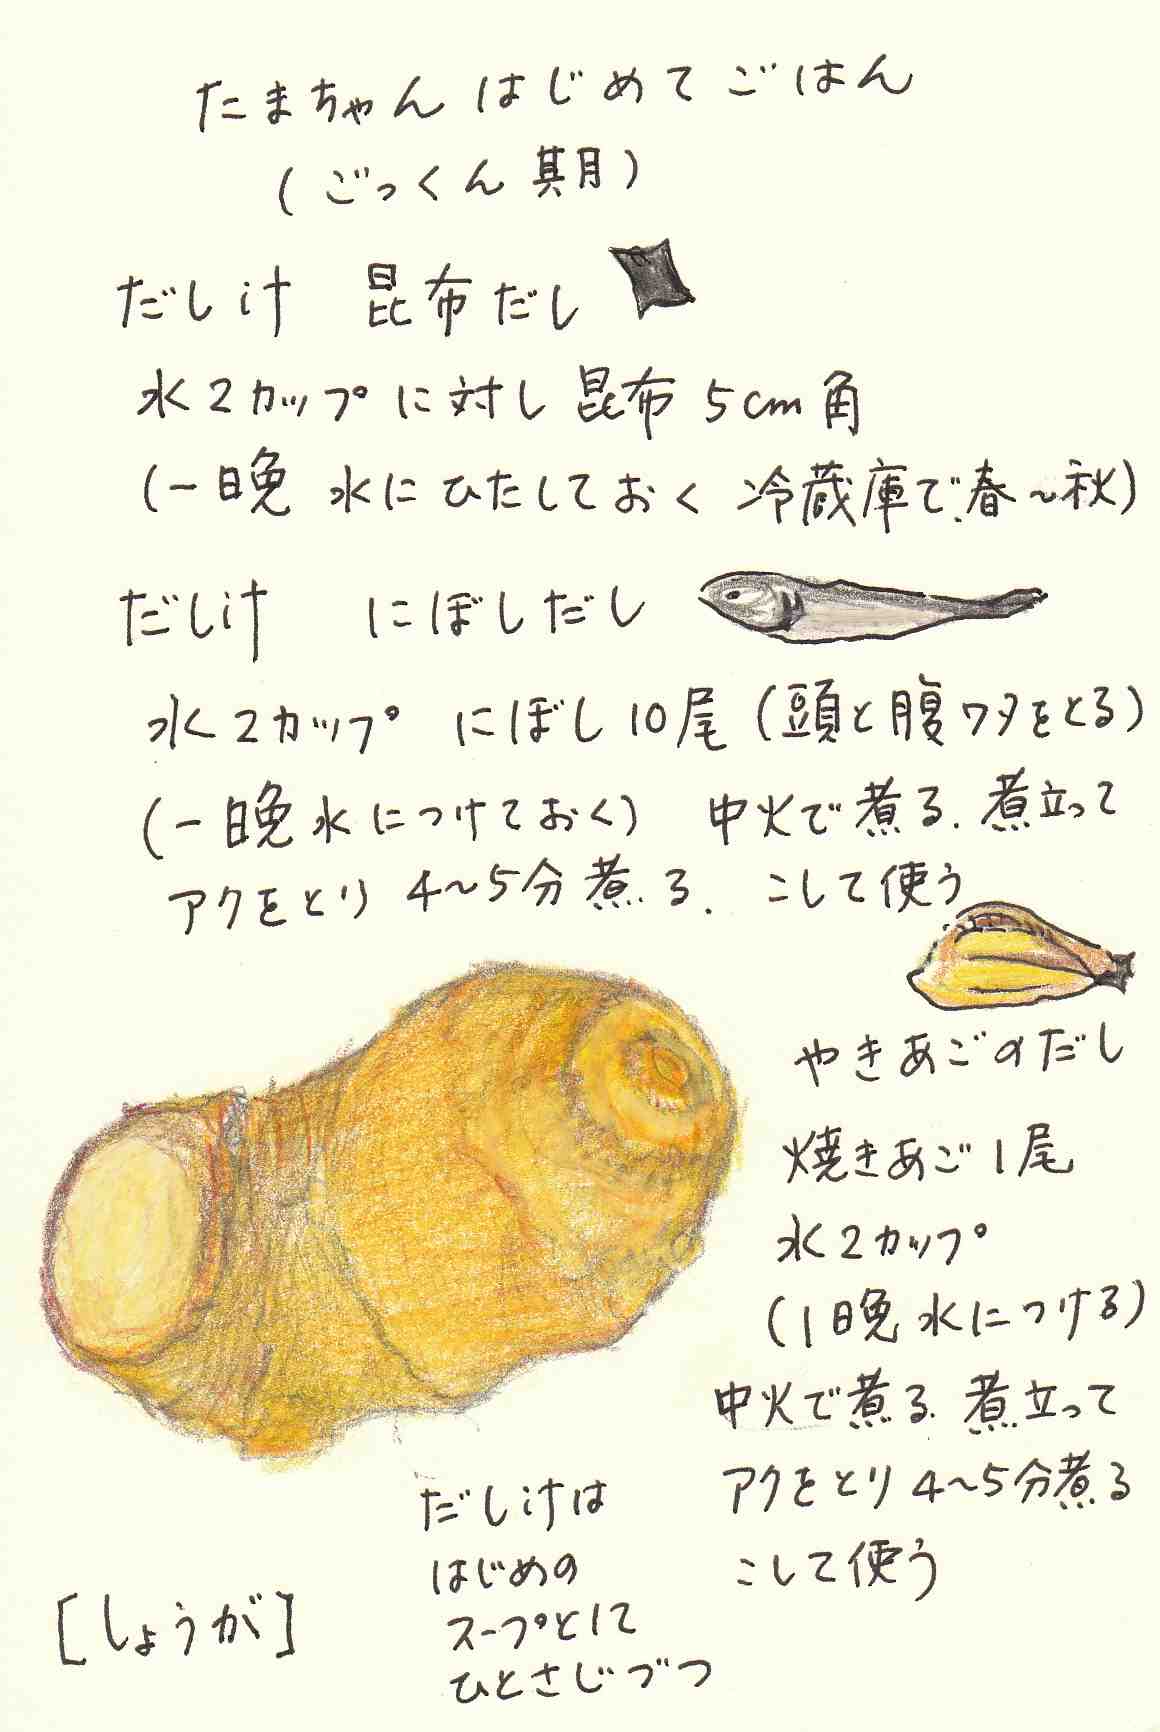 たまちゃん はじめて ごはん
(ごっくん期)
だし汁 昆布だし
水2カップに対し 昆布 5cm角
(一晩 水にひたしておく 冷蔵庫で、春～秋)
だし汁 にぼしだし
水2カップ にぼし10尾(頭と腹ワタをとる)
(一晩水につけておく) 中火で煮る、煮立って
アクをとり 4～5分煮る、こして使う
やきあごのだし
焼きあご1尾
水2カップ
(1晩水につける)
中火で煮る、煮立って
アクをとり 4～5分煮る
こして使う
だし汁は
はじめの
スープとして
ひとさじづつ
[しょうが]